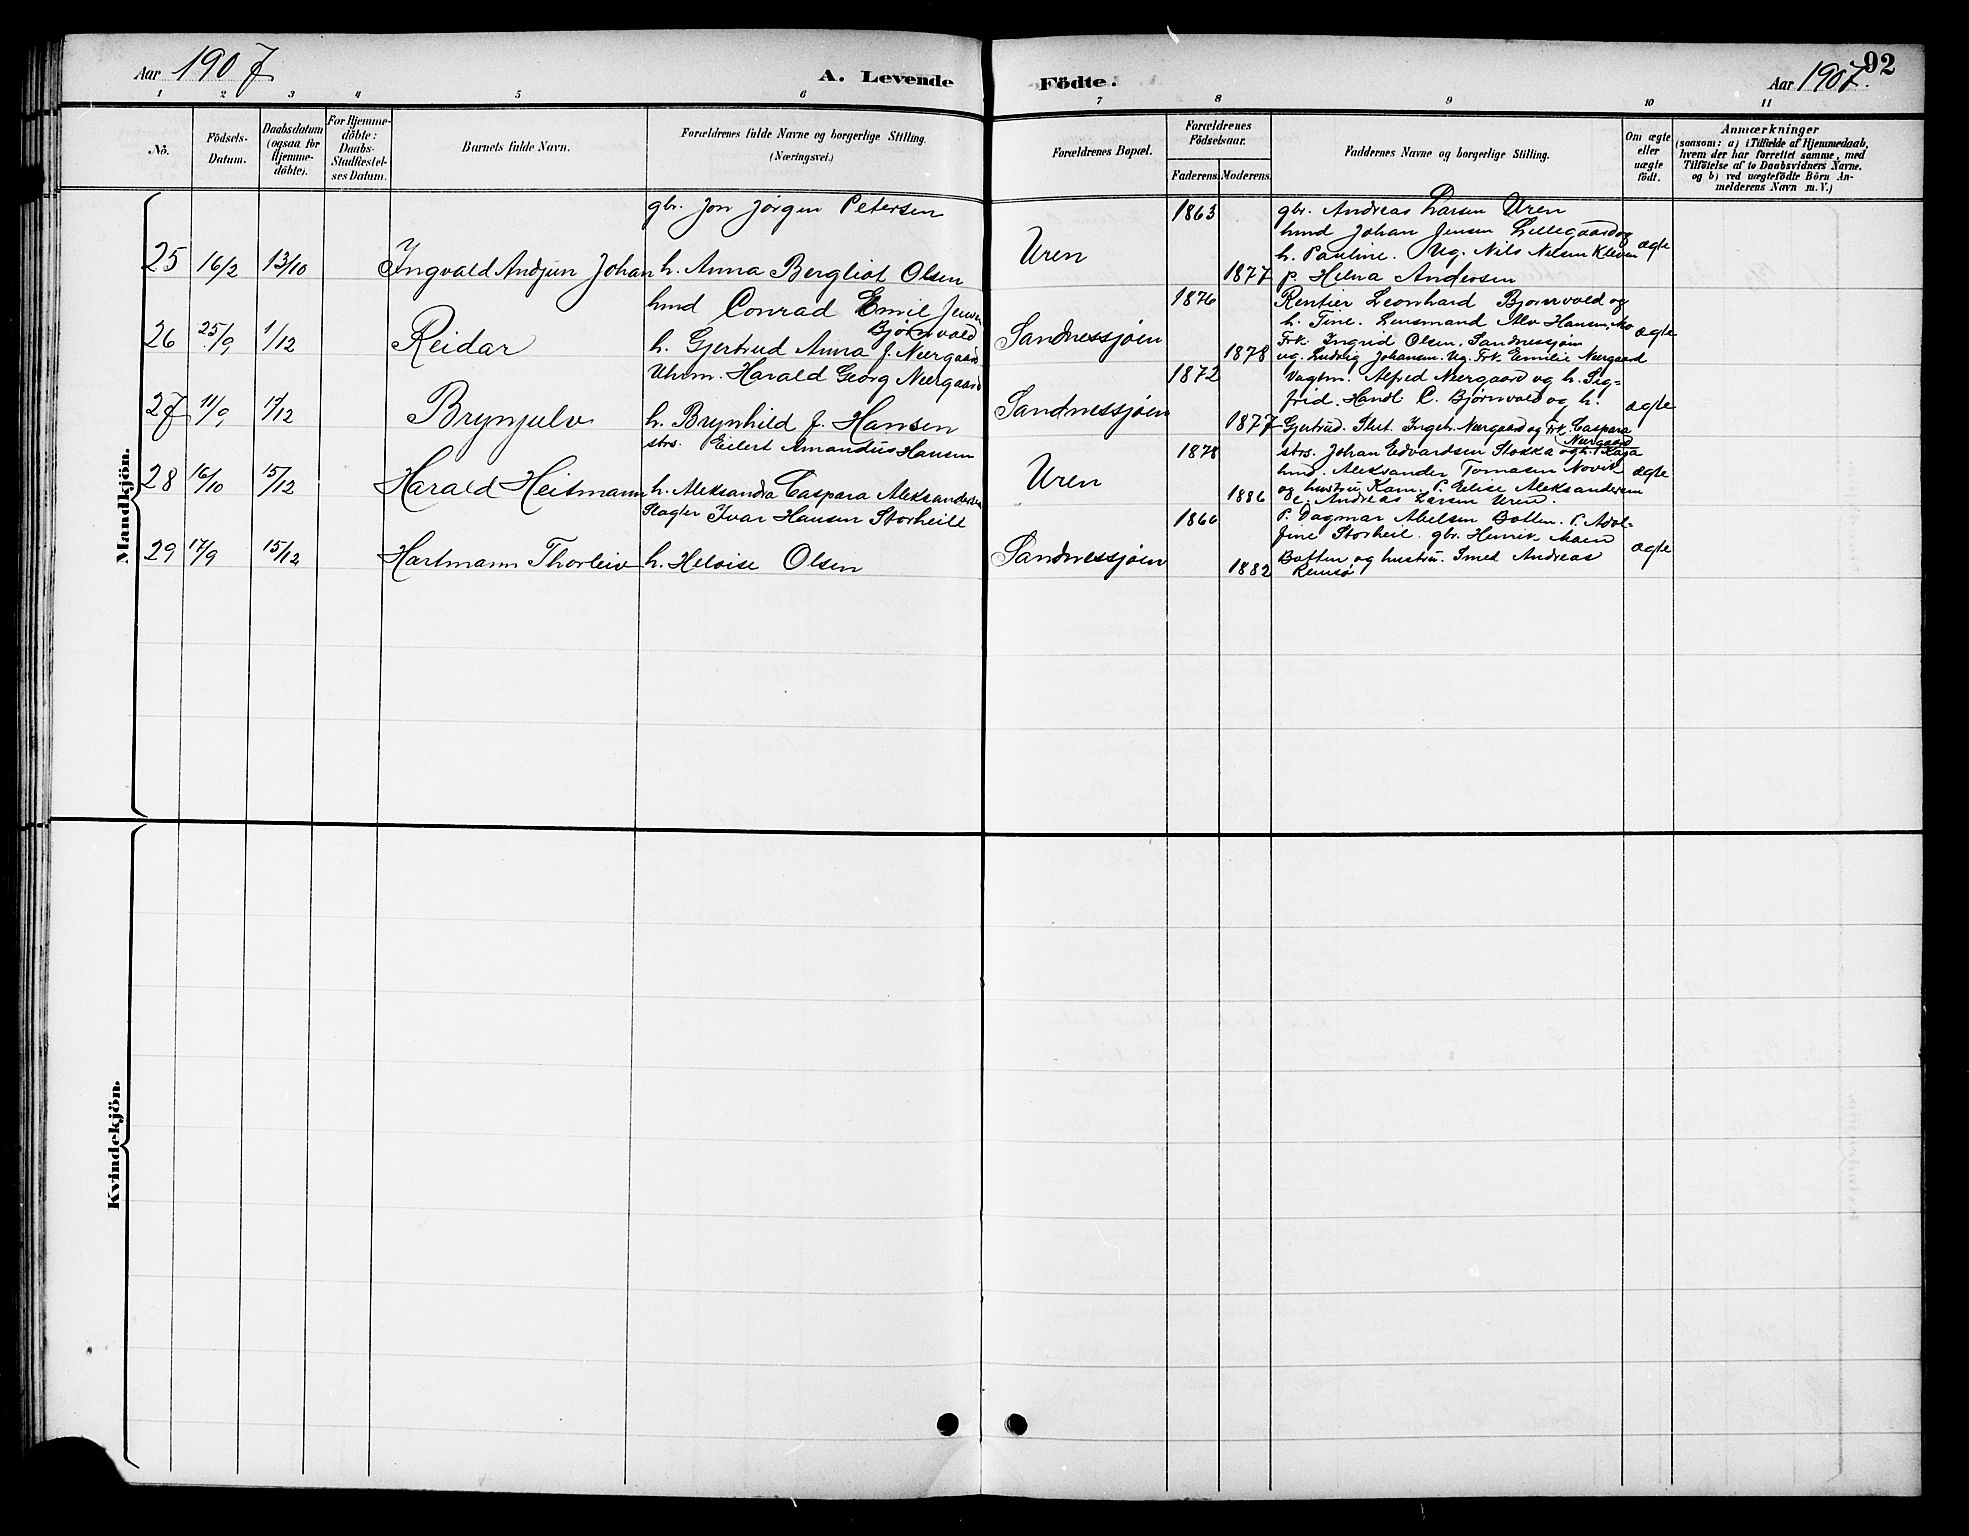 Aar 1907
A. Levende
Födte.
Aar 1907.
92
1 2 3 4 5 6 7 8 9 10 11
Nö.
Födsels-
Datum.
Daabsdatum
(ogsaa for
Hjemme-
döbte).
For Hjemme-
döbte:
Daabs-
Stadfæstel-
ses Datum.
Barnets fulde Navn.
Forældrenes fulde Navne og borgerlige Stilling.
(Næringsvei.)
Forældrenes Bopæl.
Forældrenes
Födselsaar.
Faderens. Moderens.
Faddernes Navne og borgerlige Stilling.
Om ægte
eller
uægte
födt.
Anmærkninger
(saasom: a) i Tilfælde af Hjemmedaab,
hvem der har forrettet samme, med
Tilföielse af to Daabsvidners Navne.
og b) ved uægtefödte Börn An-
melderens Navn m. V.)
Mandkjön.
25 16/2 13/10 Ingvald Andjun Johan
gbr. Jon Jörgen Petersen
h. Anna Bergliot Olsen
Uren
1863
1877
gbr. Andreas Larsen Uren
hmd Johan Jensen Lillegaard og
h. Pauline. Ug. Nils Nelsen Kleven
p. Helna Andersen
ægte
26 25/9 1/12 Reidar
hmd Conrad Emil Jensen
Björnvald
h. Gjertrud Anna f. Neergaard
Sandnessjöen
1876
1878
Rentier Leonhard Bjornvald og
h. Tine. Lensmand Alv Hansen, Mo
Frk. Ingrid Olsen, Sandnessjöen
ug. Ludvig Johansen. Ug. Frk. Emilie Neergaard
ægte
27 11/9 1/12 Brynjulv
Uhrm. Harald Georg Neergaard
h. Brynhild f. Hansen
Sandnessjöen
1872
1877
Vagtm. Alfred Neergaard og h. Sig-
frid. Handl C. Björnvald og h.
Gjertrud. Stud. Ingeb. Neergaard og Frk. Caspara
Neergaard
ægte
28 16/10 15/12 Harald Heitmann
strs. Eilert Amandus Hansen
h. Aleksandra Caspara Aleksandersen
Uren
1878
1886
strs. Johan Edvardsen Stokka og h. Kaja
hmd. Aleksander Tomasen Novik
og hustru Kam. P. Elise Aleksandersen
e. Andreas Larsen Uren.
ægte
29 17/9 15/12 Hartmann Thorleiv
Slagter Ivar Hansen Storheill
h. Heloise Olsen
Sandnessjöen
1866
1882
P. Dagmar Abelsen Botten. P. Adol-
fine Storheil. gbr. Henrik Moen
Botten og hustru. Smed Andreas
Remsö
ægte
Kvindekjön.